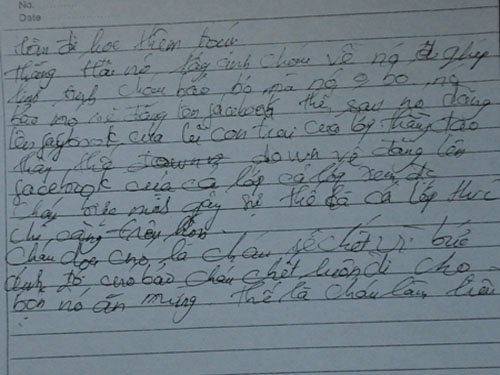 No.
Date
hôm đi học thêm
thằng Hải nó lấy ảnh cháu về nó ghép
linh tinh cháu bảo bỏ mà nó bỏ nó
bảo nó sẽ đăng lên facebook thế sau nó đăng
lên facebook của con trai của lớp thằng
thay thế down về đăng lên
facebook của cả lớp cả lớp xem đc
cháu bực mới gây sự thế là cả lớp
chỉ càng trêu hơn.
cháu dọa cho là cháu sẽ chết vì bức
ảnh đó, bảo cháu chết luôn đi cho
bọn nó ăn mừng thế là cháu làm liều